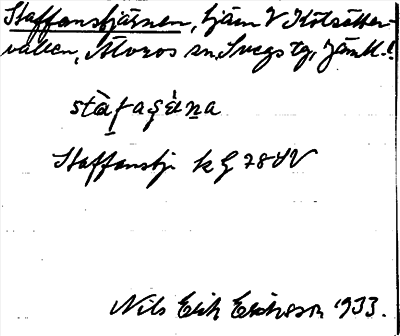 Staffanstjärnen, tjärn V Kölsätter-
vallen, Älvros sn, Svegs tg, Jämtl.
stàfaʂä̀na
Staffanstj. k G 78 SV
Nils Erik Eriksson 1933.